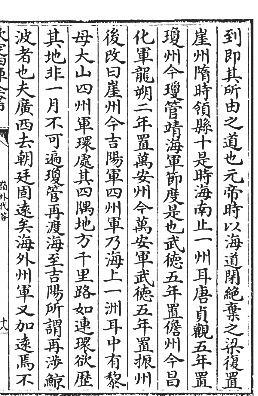 到即其所由之道也元帝時以海道閉絶棄之梁復置
崖州隋時領縣十是時海南止一州耳唐貞觀五年置
瓊州今瓊管靖海軍節度是也武德五年置儋州今昌
化軍龍朔二年置萬安州今萬安軍武德五年置振州
後改曰崖州今吉陽軍四州軍乃海上一洲耳中有黎
母大山四州軍環處其四隅地方千里路如連環欲歴
其地非一月不可遍瓊管再渡海至吉陽所謂再渉鯨
波者也夫廣西去朝廷固逺矣海外州軍又加逺焉不
欽定四庫全書
嶺外代答